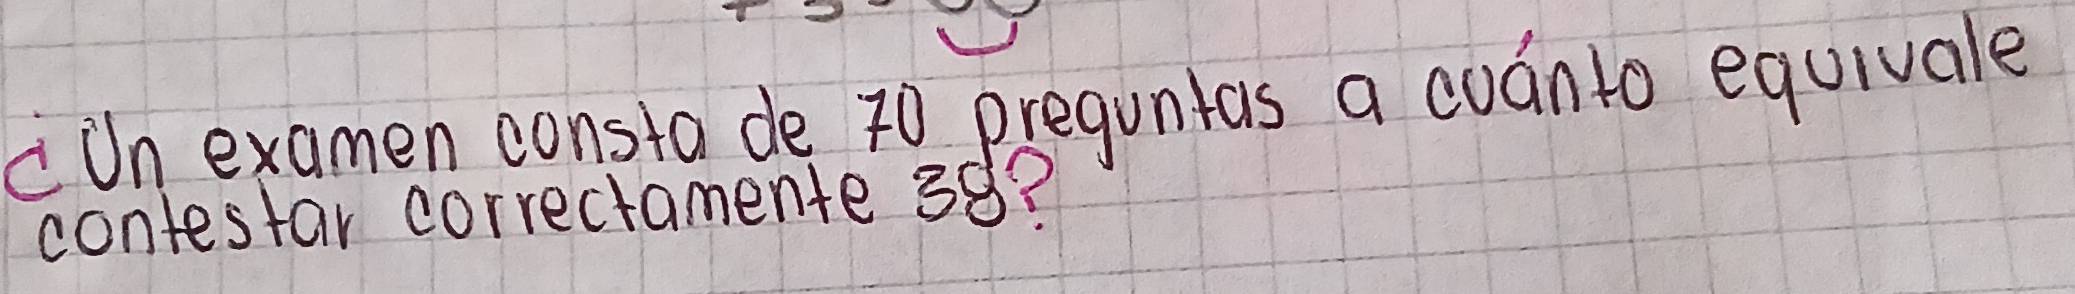 ¿Un examen consta de 70 preguntas a cuánto equivale
contestar correctamente 38?